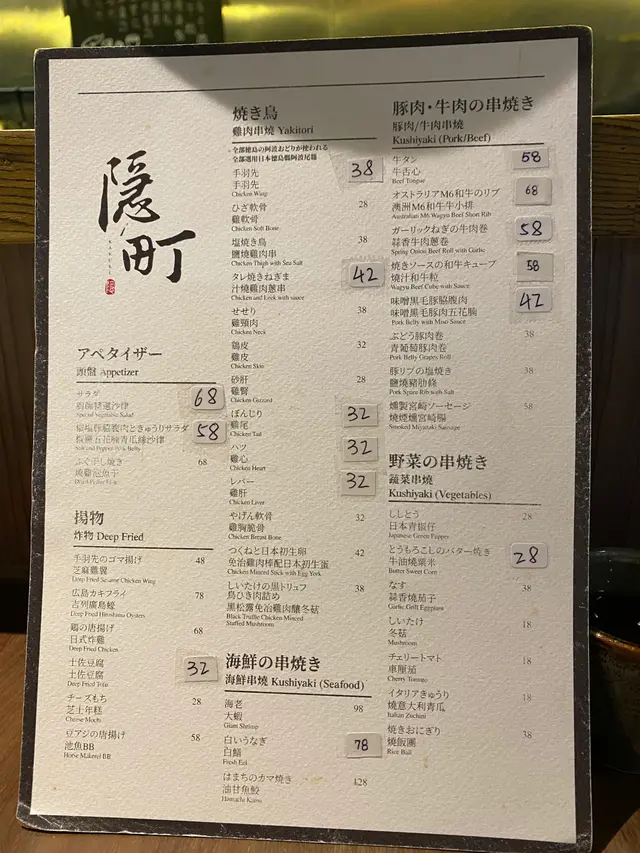 隠町
KAKURE
アペタイザー
頭盤 Appetizer
サラダ
廚師精選沙律
Special Vegetable Salad
68
58
ふぐ干し焼き
燒雞泡魚干
68
揚物
炸物 Deep Fried
手羽先のゴマ揚げ
芝麻雞翼
Deep Fried Sesame Chicken Wing
48
広島カキフライ
吉列廣島蠔
Deep Fried Hiroshima Oysters
78
鶏の唐揚げ
日式炸雞
Deep Fried Chicken
68
土佐豆腐
土佐豆腐
Deep Fried Tofu
32
チーズもち
芝士年糕
Cheese Mochi
28
豆アジの唐揚げ
池魚BB
Horse Makerel BB
58
焼き鳥
雞肉串燒 Yakitori
全部徳島の阿波おどりが使われる
全部選用日本德島縣阿波尾雞
手羽先
手羽先
Chicken Wing
38
ひざ軟骨
雞軟骨
Chicken Soft Bone
28
塩焼き鳥
鹽燒雞肉串
Chicken Thigh with Sea Salt
38
タレ焼きねぎま
汁燒雞肉蔥串
Chicken and Leek with sauce
42
せせり
雞頸肉
Chicken Neck
38
鶏皮
雞皮
Chicken Skin
32
砂肝
雞腎
Chicken Gizzard
28
ぼんじり
雞尾
Chicken Tail
32
ハツ
雞心
Chicken Heart
32
レバー
雞肝
Chicken Liver
32
やげん軟骨
雞胸脆骨
Chicken Breast Bone
32
つくねと日本初生卵
免治雞肉棒配日本初生蛋
Chicken Minced Stick with Egg York
42
しいたけの黒トリュフ
鳥ひき肉詰め
黑松露免治雞肉釀冬菇
Black Truffle Chicken Minced
Stuffed Mushroom
38
海鮮の串焼き
海鮮串燒 Kushiyaki (Seafood)
海老
大蝦
Giant Shrimp
98
白いうなぎ
白鱔
Fresh Eel
78
はまちのカマ焼き
油甘魚鮫
Hamachi Kama
128
豚肉・牛肉の串焼き
豚肉/牛肉串燒
Kushiyaki (Pork/Beef)
牛タン
牛舌心
Beef Tongue
58
オストラリアM6和牛のリブ
澳洲M6和牛牛小排
Australian M6 Wagyu Beef Short Rib
68
ガーリックねぎの牛肉巻
蒜香牛肉蔥卷
Spring Onion Beef Roll with Garlic
58
焼きソースの和牛キューブ
燒汁和牛粒
Wagyu Beef Cube with Sauce
58
味噌黒毛豚脇腹肉
味噌黑毛豚肉五花腩
Pork Belly with Miso Sauce
42
ぶどう豚肉巻
青葡萄豚肉卷
Pork Belly Grapes Roll
38
豚リブの塩焼き
鹽燒豬肋條
Pork Spare Rib with Salt
38
燻製宮崎ソーセージ
燒煙燻宮崎腸
Smoked Miyazaki Sausage
58
野菜の串焼き
蔬菜串燒
Kushiyaki (Vegetables)
ししとう
日本青椒仔
Japanese Green Pepper
28
とうもろこしのバター焼き
牛油燒粟米
Butter Sweet Corn
28
なす
蒜香燒茄子
Garlic Grill Eggplant
38
しいたけ
冬菇
Mushroom
18
チェリートマト
車厘茄
Cherry Tomato
18
イタリアきゅうり
燒意大利青瓜
Italian Zuchini
18
焼きおにぎり
燒飯團
Rice Ball
38